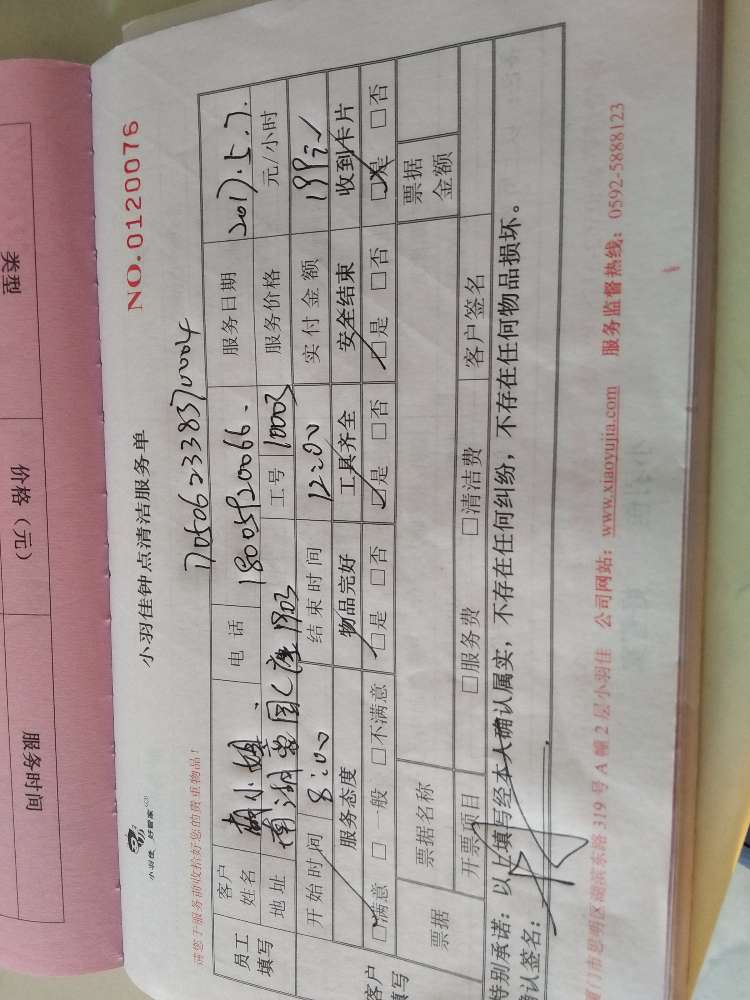 类型
价格（元）
服务时间
NO.0120076
小羽佳钟点清洁服务单
小羽佳 好管家
请您于服务前收拾好您的贵重物品！
1705062338370004
员工填写
客户姓名 小姐 电话 18005920066 服务日期 2017.5.7.
地址 南湖 园 座 1903 工号 10003 服务价格 元/小时
开始时间 8:00 结束时间 12:00 实付金额 199元
客户填写
服务态度 物品完好 工具齐全 安全结束 收到卡片
□满意 □一般 □不满意 □是 □否 □是 □否 □是 □否 □是 □否
票据 票据名称 票据金额
开票项目 □服务费 □清洁费 客户签名
特别承诺：以上填写经本人确认属实，不存在任何纠纷，不存在任何物品损坏。
确认签名：
厦门市思明区湖滨东路319号A幢2层小羽佳 公司网站：www.xiaoyujia.com 服务监督热线：0592-5888123